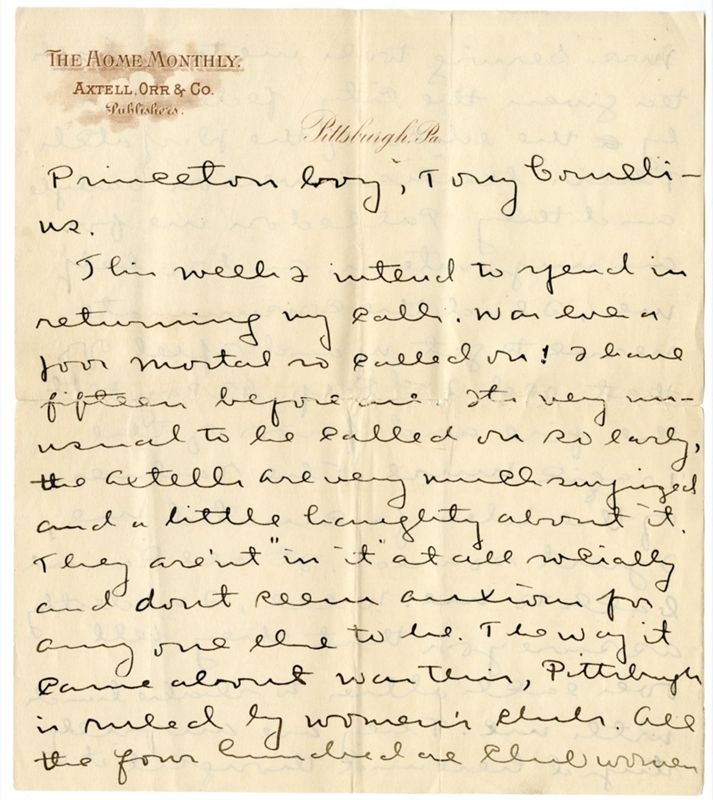 THE HOME MONTHLY.
AXTELL, ORR & CO.
Publishers.
Pittsburgh, Pa.
Princeton boy", Tony Corneli-
us.
This week I intend to spend in
returning my calls. Was ever a
poor mortal so called on! I have
fifteen before me. Its very un-
usual to be called on so early,
the Axtells are very much surprized
and a little haughty about it.
They are'nt "in it" at all socially
and dont seem anxious for
any one else to be. The way it
came about was this, Pittsburgh
is ruled by women's clubs. All
the four hundred are club women